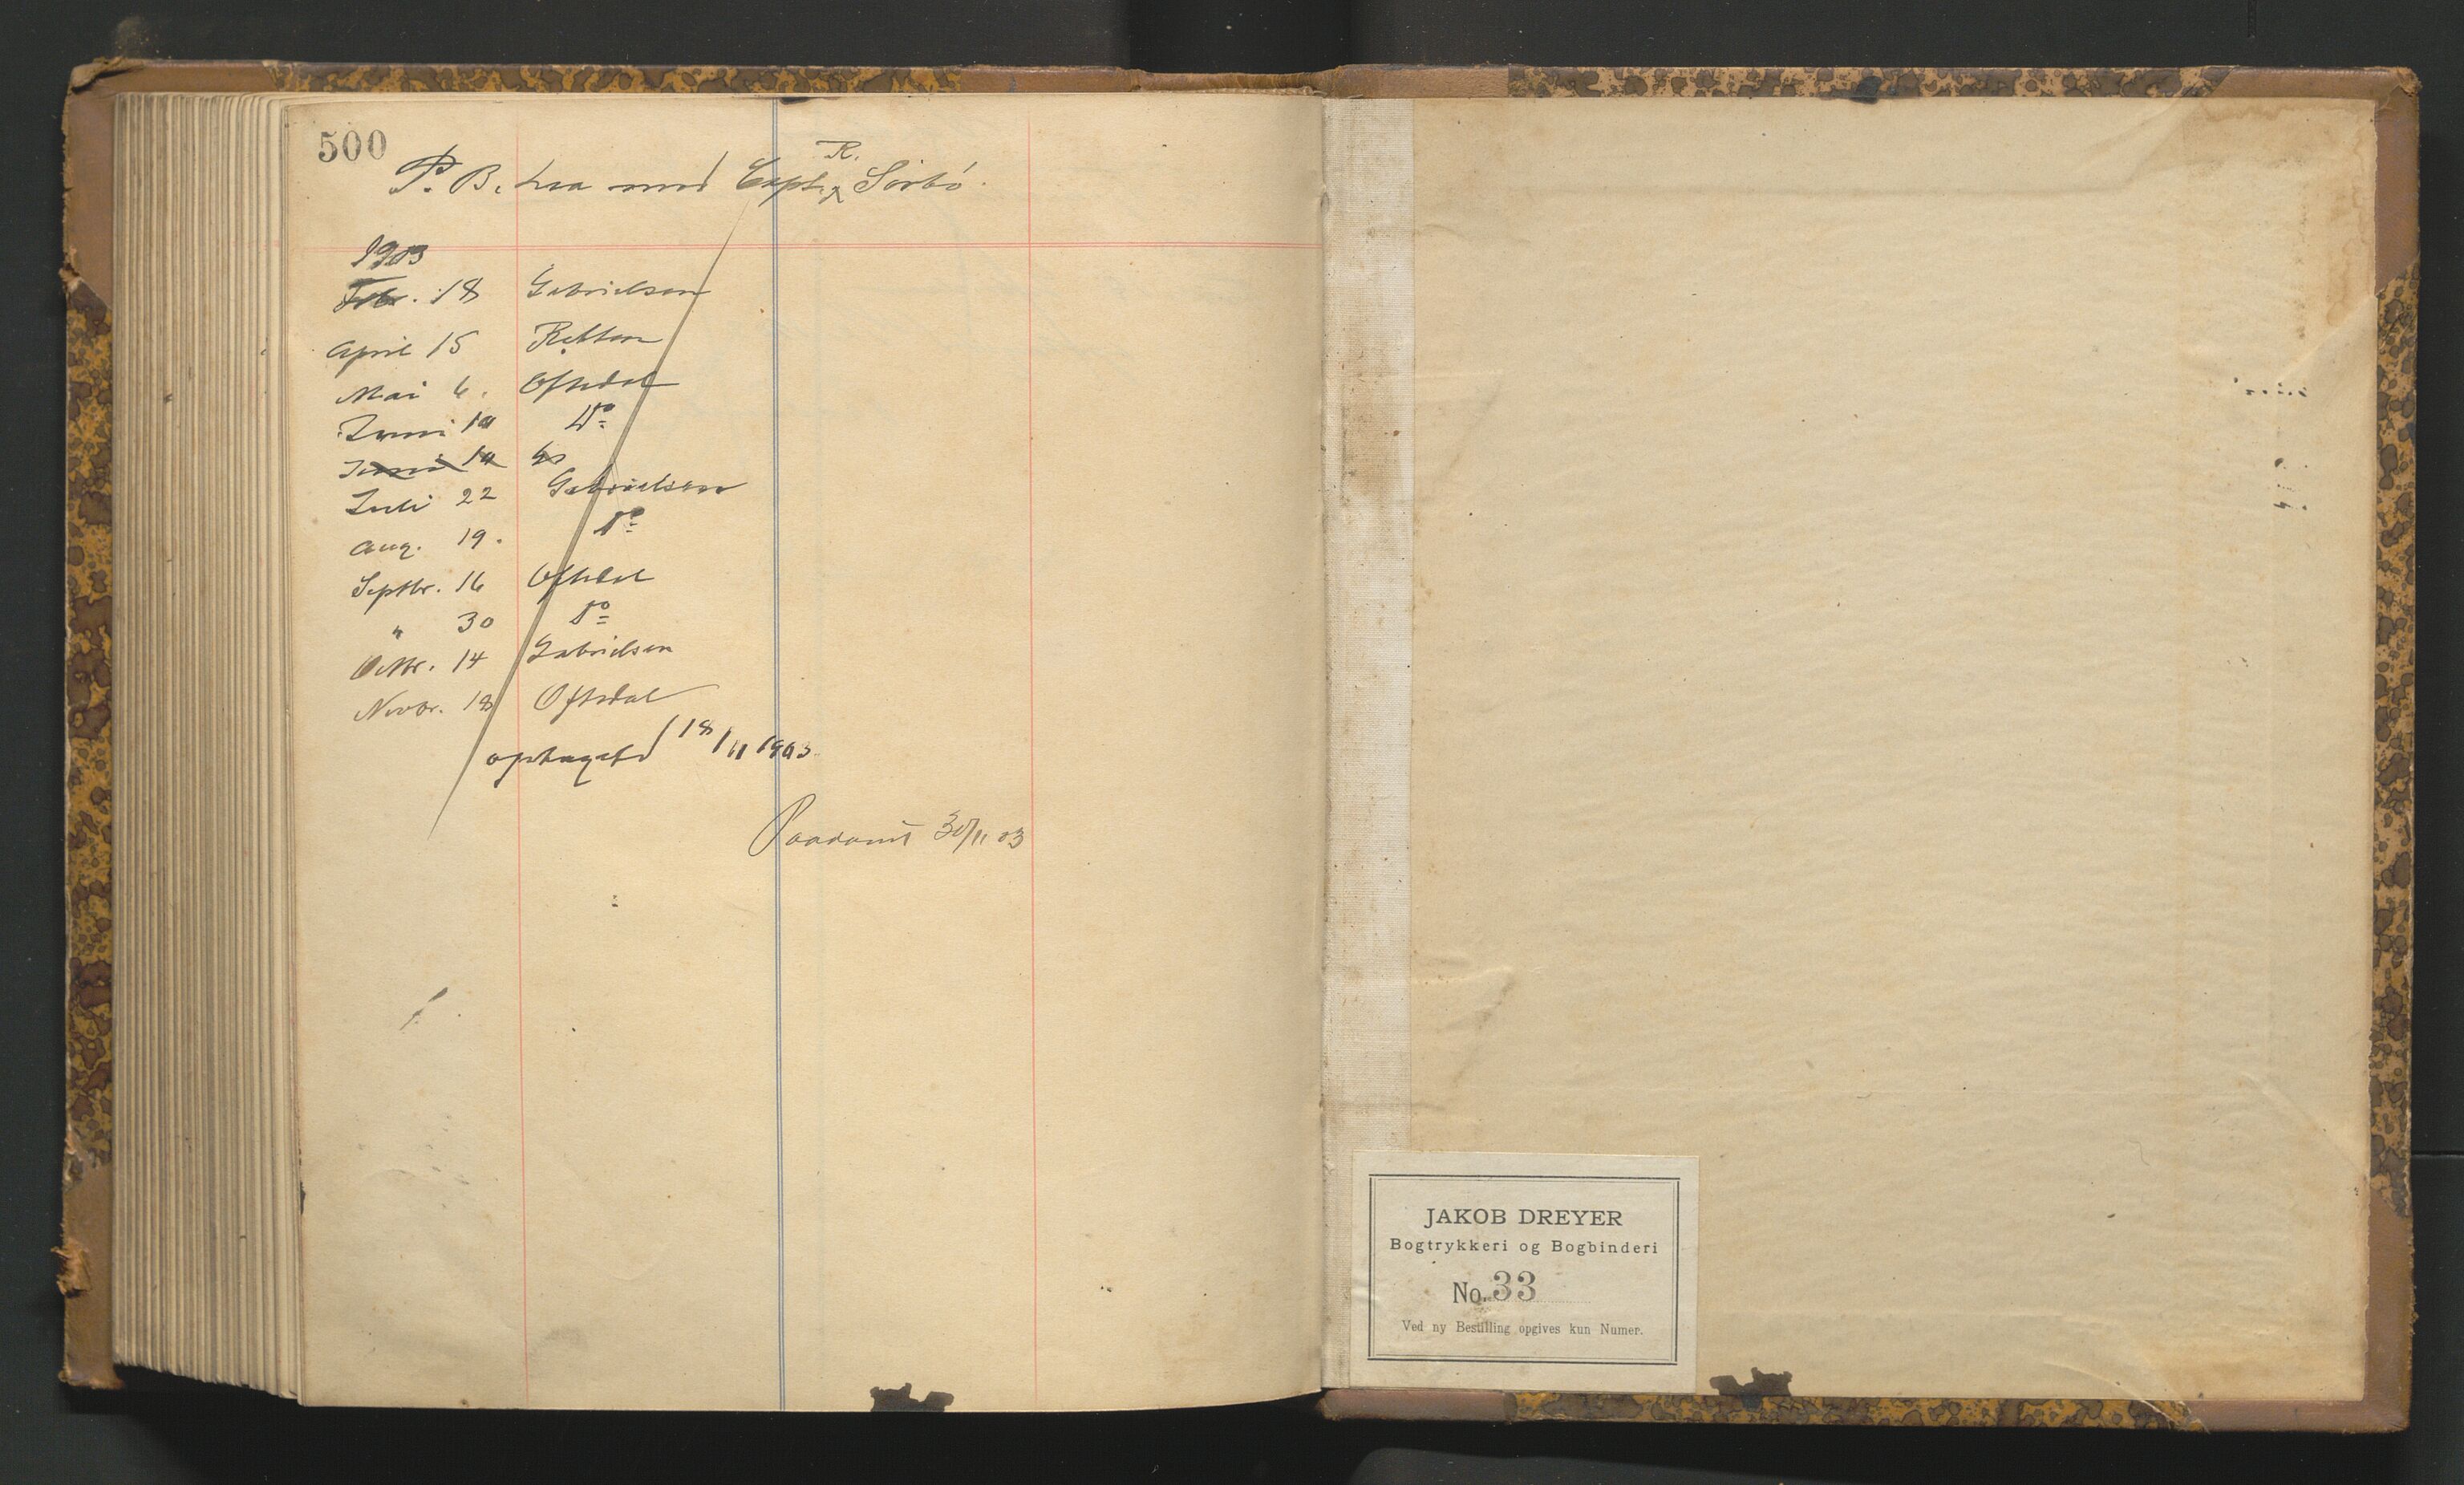 500
P. B. Lea mod Capt. R. Sörbö.
1903
Febr. 18 Gabrielsen
April 15 Retten
Mai 6. Oftedal
Juni 10 Do
Juni 10 do
Juli 22 Gabrielsen
Aug. 19. Do
Septbr. 16 Oftedal
" 30 Do
Octbr. 14 Gabrielsen
Novbr. 18 Oftedal
optaget 18/11 1903
Paadömt 30/11 03
JAKOB DREYER
Bogtrykkeri og Bogbinderi
No. 33
Ved ny Bestilling opgives kun Numer.